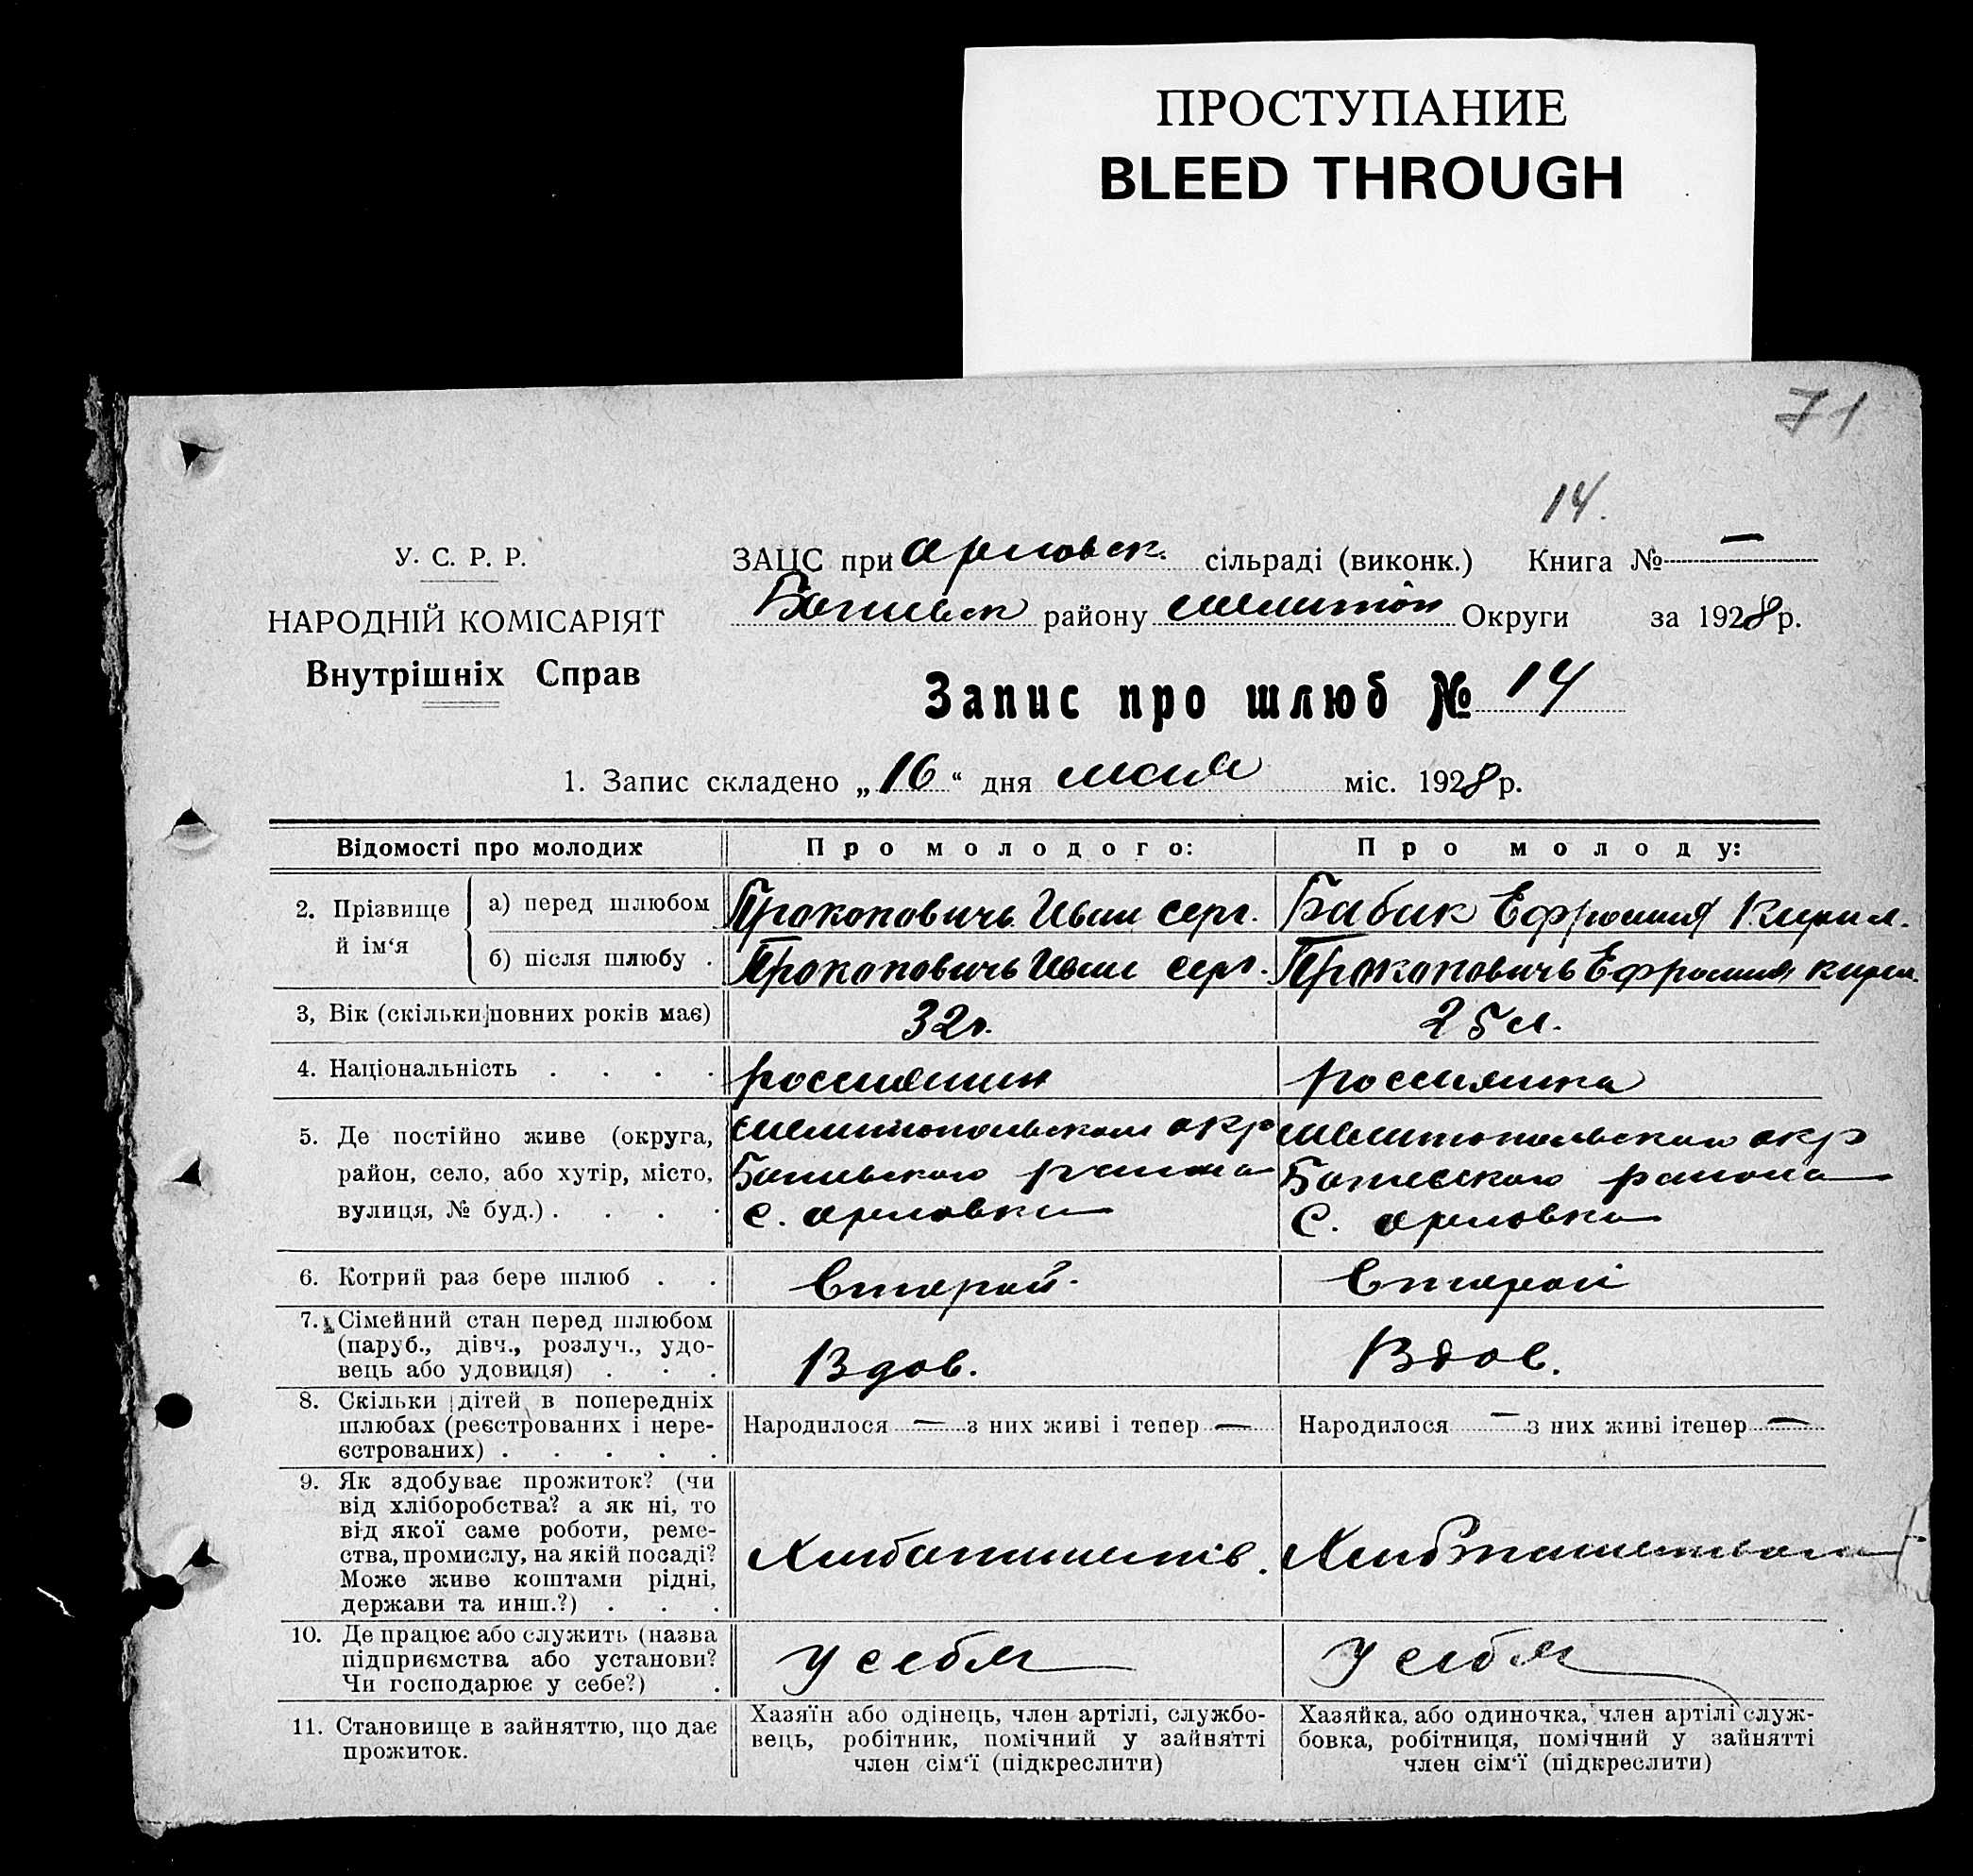 ПРОСТУПАНИЕ
BLEED THROUGH
71
14.
У. С. Р. Р.
НАРОДНІЙ КОМІСАРІЯТ
Внутрішніх Справ
ЗАЦС при Орловск. сільраді (виконк.) Книга № —
району Округи за 1928 р.
Запис про шлюб № 14
1. Запис складено „16“ дня мая міс. 1928 р.
Відомості про молодих Про молодого: Про молоду:
2. Прізвище й ім‘я
а) перед шлюбом Прокоповичь Иван Серг. Бабик Ефросиния Кирил.
б) після шлюбу . Прокоповичь Иван Серг. Прокоповичь Ефросиния Кирил.
3, Вік (скільки повних років має) 32 г. 25 л.
4. Національність . . . . россиянин россиянка
5. Де постійно живе (округа,
район, село, або хутір, місто,
вулиця, № буд.) . . . .
Мелитопольской окр
района
с. Орловка
Мелитопольской окр
района
с. Орловка
6. Котрий раз бере шлюб . . Второй. Второй
7. Сімейний стан перед шлюбом
(паруб., дівч., розлуч., удо-
вець або удовиця) . . .
Вдов. Вдов.
8. Скільки дітей в попередніх
шлюбах (реєстрованих і нере-
єстрованих) . . . . .
Народилося — з них живі і тепер — Народилося — з них живі ітепер —
9. Як здобуває прожиток? (чи
від хліборобства? а як ні, то
від якої саме роботи, реме-
ства, промислу, на якій посаді?
Може живе коштами рідні,
держави та инш.?) . . .
10. Де працює або служить (назва
підприємства або установи?
Чи господарює у себе?) .
У себя У себя
11. Становище в зайняттю, що дає
прожиток.
Хазяїн або одінець, член артілі, службо-
вець, робітник, помічний у зайнятті
член сім‘ї (підкреслити)
Хазяйка, або одиночка, член артілі служ-
бовка, робітниця, помічний у зайнятті
член сім‘ї (підкреслити)